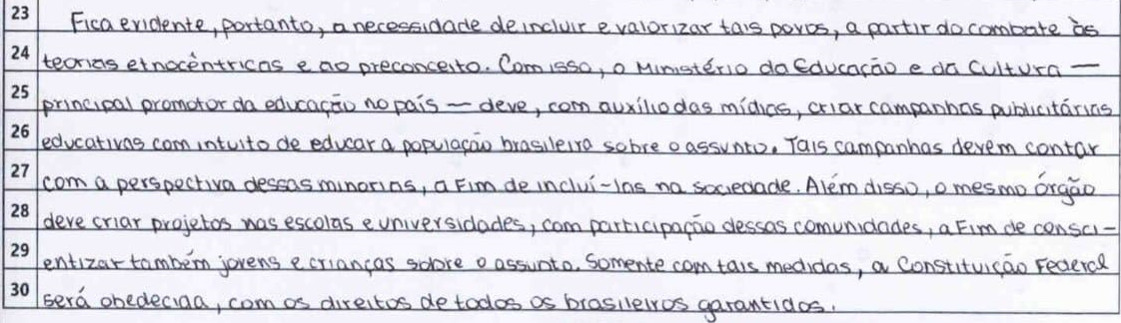 23 Fica evidente, portanto, a necessidade de incluir e valorizar tais povos, a partir do combate às
24 teorias etnocêntricas e ao preconceito. Com isso, o Ministério da Educação e da Cultura —
25 principal promotor da educação no país — deve, com auxílio das mídias, criar campanhas publicitárias
26 educativas com intuito de educar a população brasileira sobre o assunto. Tais campanhas devem contar
27 com a perspectiva dessas minorias, a fim de incluí-las na sociedade. Além disso, o mesmo órgão
28 deve criar projetos nas escolas e universidades, com participação dessas comunidades, a fim de consci-
29 entizar também jovens e crianças sobre o assunto. Somente com tais medidas, a Constituição Federal
30 será obedecida, com os direitos de todos os brasileiros garantidos.